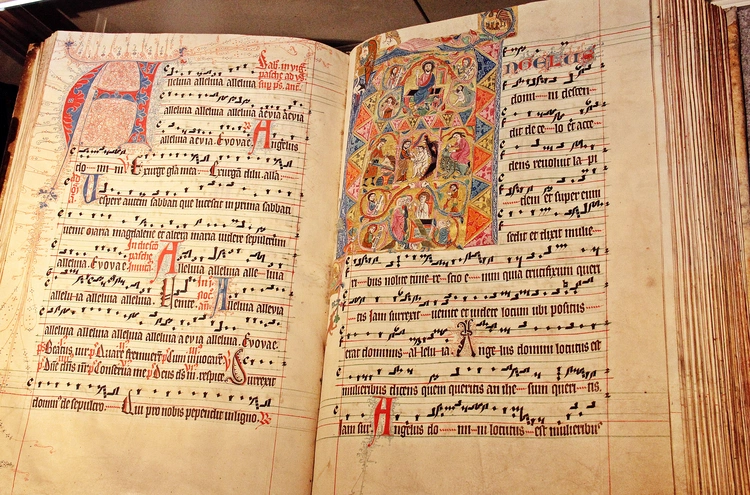 Sab. in vig.
pasche ad vs.
sup ps. ant.
lleluia alleluia alleluia
alleluia alleluia alleluia aevia aevia
alleluia aevia Evovae. Angelus
do mi ni Exurge gla mea. Exurgā dilu.
Vespere autem sabbati que lucescit in prima sabbati
venit maria magdalene et altera maria videre sepulcrum
alleluia. Evovae. Alleluia alle luia
allelu ia alleluia alleluia Venite. Alleluia allevia
alleluia alleluia alleluia alleluia a evia alleluia. Evovae.
Surrexit
domin⁹ de sepulcro. Qui pro nobis pependit in ligno.
NGELUS
domi ni descen
dit de ce lo et acce
dens revoluit la pi
dem et super eum
sedit et dixit mulie
ri bus nolite time re scio e nim quia crucifixum queri
tis Jam surrexit venite et videte locum ubi positus
erat dominus al lelu ia. Ange lus domini locutus est
mulieribus dicens quem queritis an Jhe sum queri tis.
Jam sur. Angelus do mi ni locutus est mulieribus